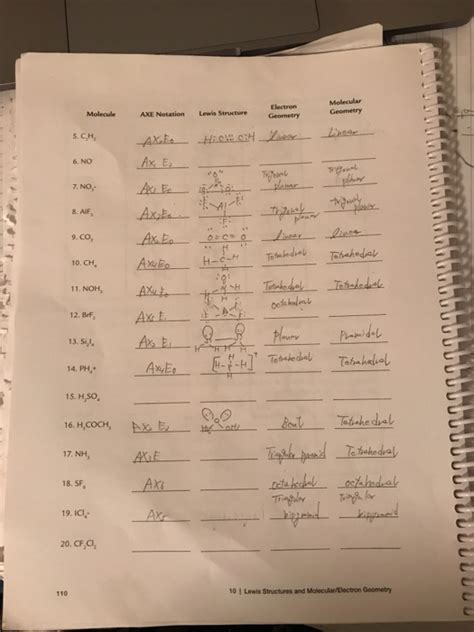 Molecule AXE Notation Lewis Structure Electron Geometry Molecular Geometry
5. C₂H₂ AX₂E₀ H:C::C:H Linear Linear
6. NO AX₁ E₂
7. NO₃⁻ AX₃ E₀ Trigonal planar Trigonal planar
8. AlF₃ AX₃E₀ Trigonal planar Trigonal planar
9. CO₂ AX₂E₀ O=C=O Linear Linear
10. CH₄ AX₄E₀ Tetrahedral Tetrahedral
11. NOH₃ AX₄E₀ Tetrahedral Tetrahedral
12. BrF₅ AX₅E₁ octahedral
13. Si₂I₄ AX₃ E₁ Planar Pramidal
14. PH₄⁺ AX₄E₀ Tetrahedral Tetrahedral
15. H₂SO₄
16. H₃COCH₃ AX₂ E₂ Bent Tetrahedral
17. NH₃ AX₃E Tetrahedral
18. SF₆ AX₆ octahedral octahedral
19. ICl₄⁺ AX₅ Triangular bipyramid Triangular bipyramid
20. CF₂Cl₂
110 10 | Lewis Structures and Molecular/Electron Geometry